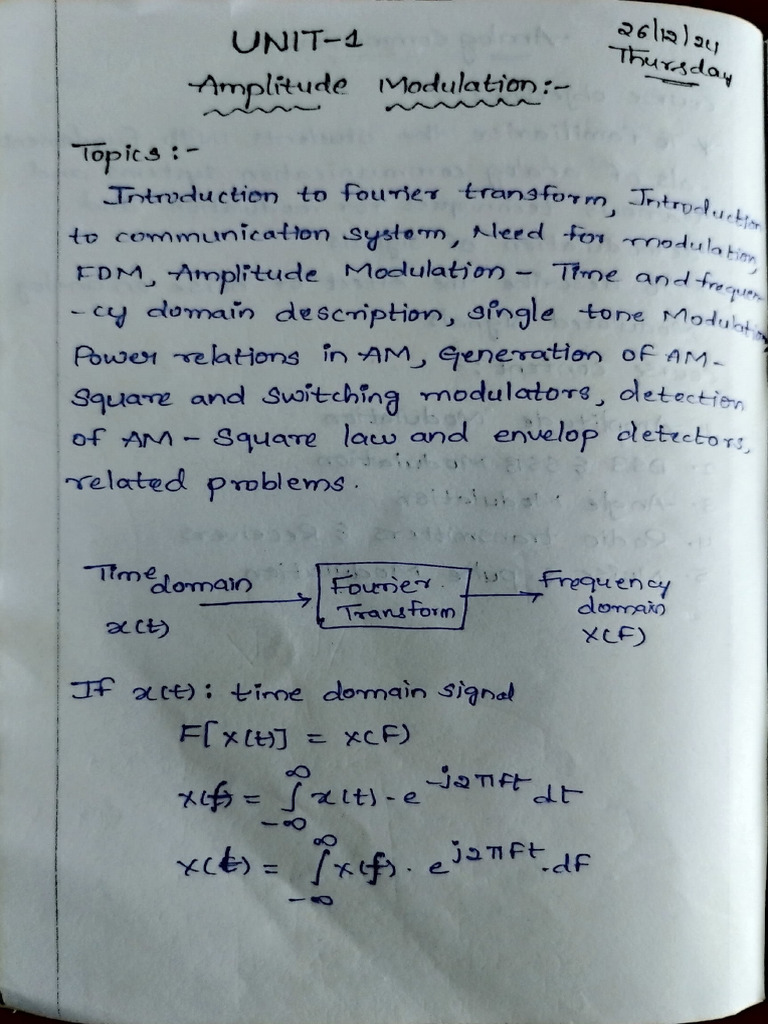 UNIT-1
26/12/24
Thursday
Amplitude Modulation:-
Topics:-
Introduction to fourier transform, Introduction
to communication system, Need for modulation,
FDM, Amplitude Modulation - Time and frequen
-cy domain description, single tone Modulation
Power relations in AM, Generation of AM-
Square and switching modulators, detection
of AM - Square law and envelop detectors,
related problems.
Time domain
x(t)
Fourier
Transform
Frequency
domain
X(F)
If x(t): time domain signal
F[x(t)] = X(F)
X(f) = ∫_{-∞}^{∞} x(t) - e^{-j2πft} dt
x(t) = ∫_{-∞}^{∞} x(f) . e^{j2πFt} .df